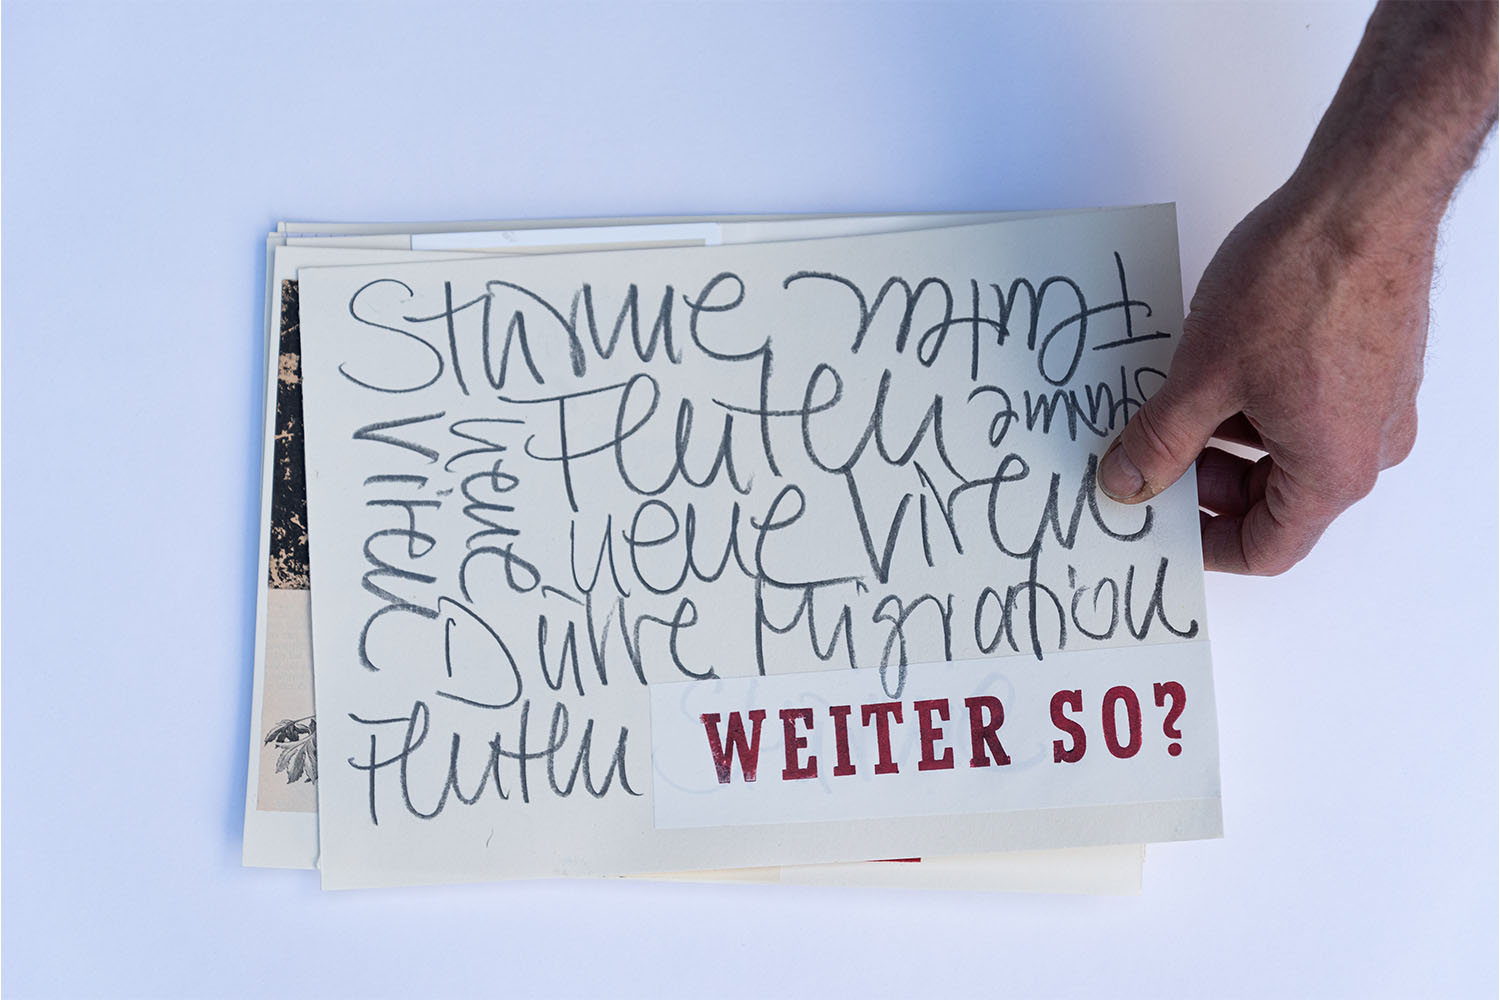 Stürme Fluten
Fluten Stürme
neue Viren
Viren neue
Dürre Migration
Fluten
WEITER SO?